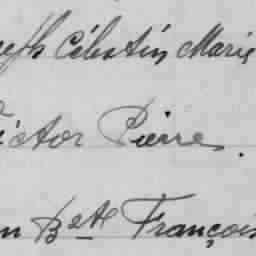 eph Célestin Marie
ictor Pierre.
n Bte François